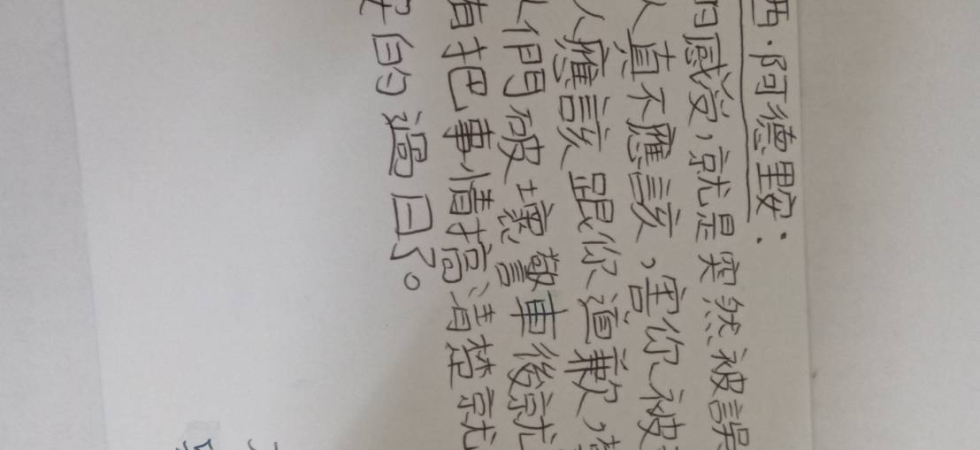 西·阿德里安：
的感受，就是突然被誤
人真不應該，害你被
人應該跟你道歉，
人們破壞警車後就
有把事情搞清楚就
好的過日子。